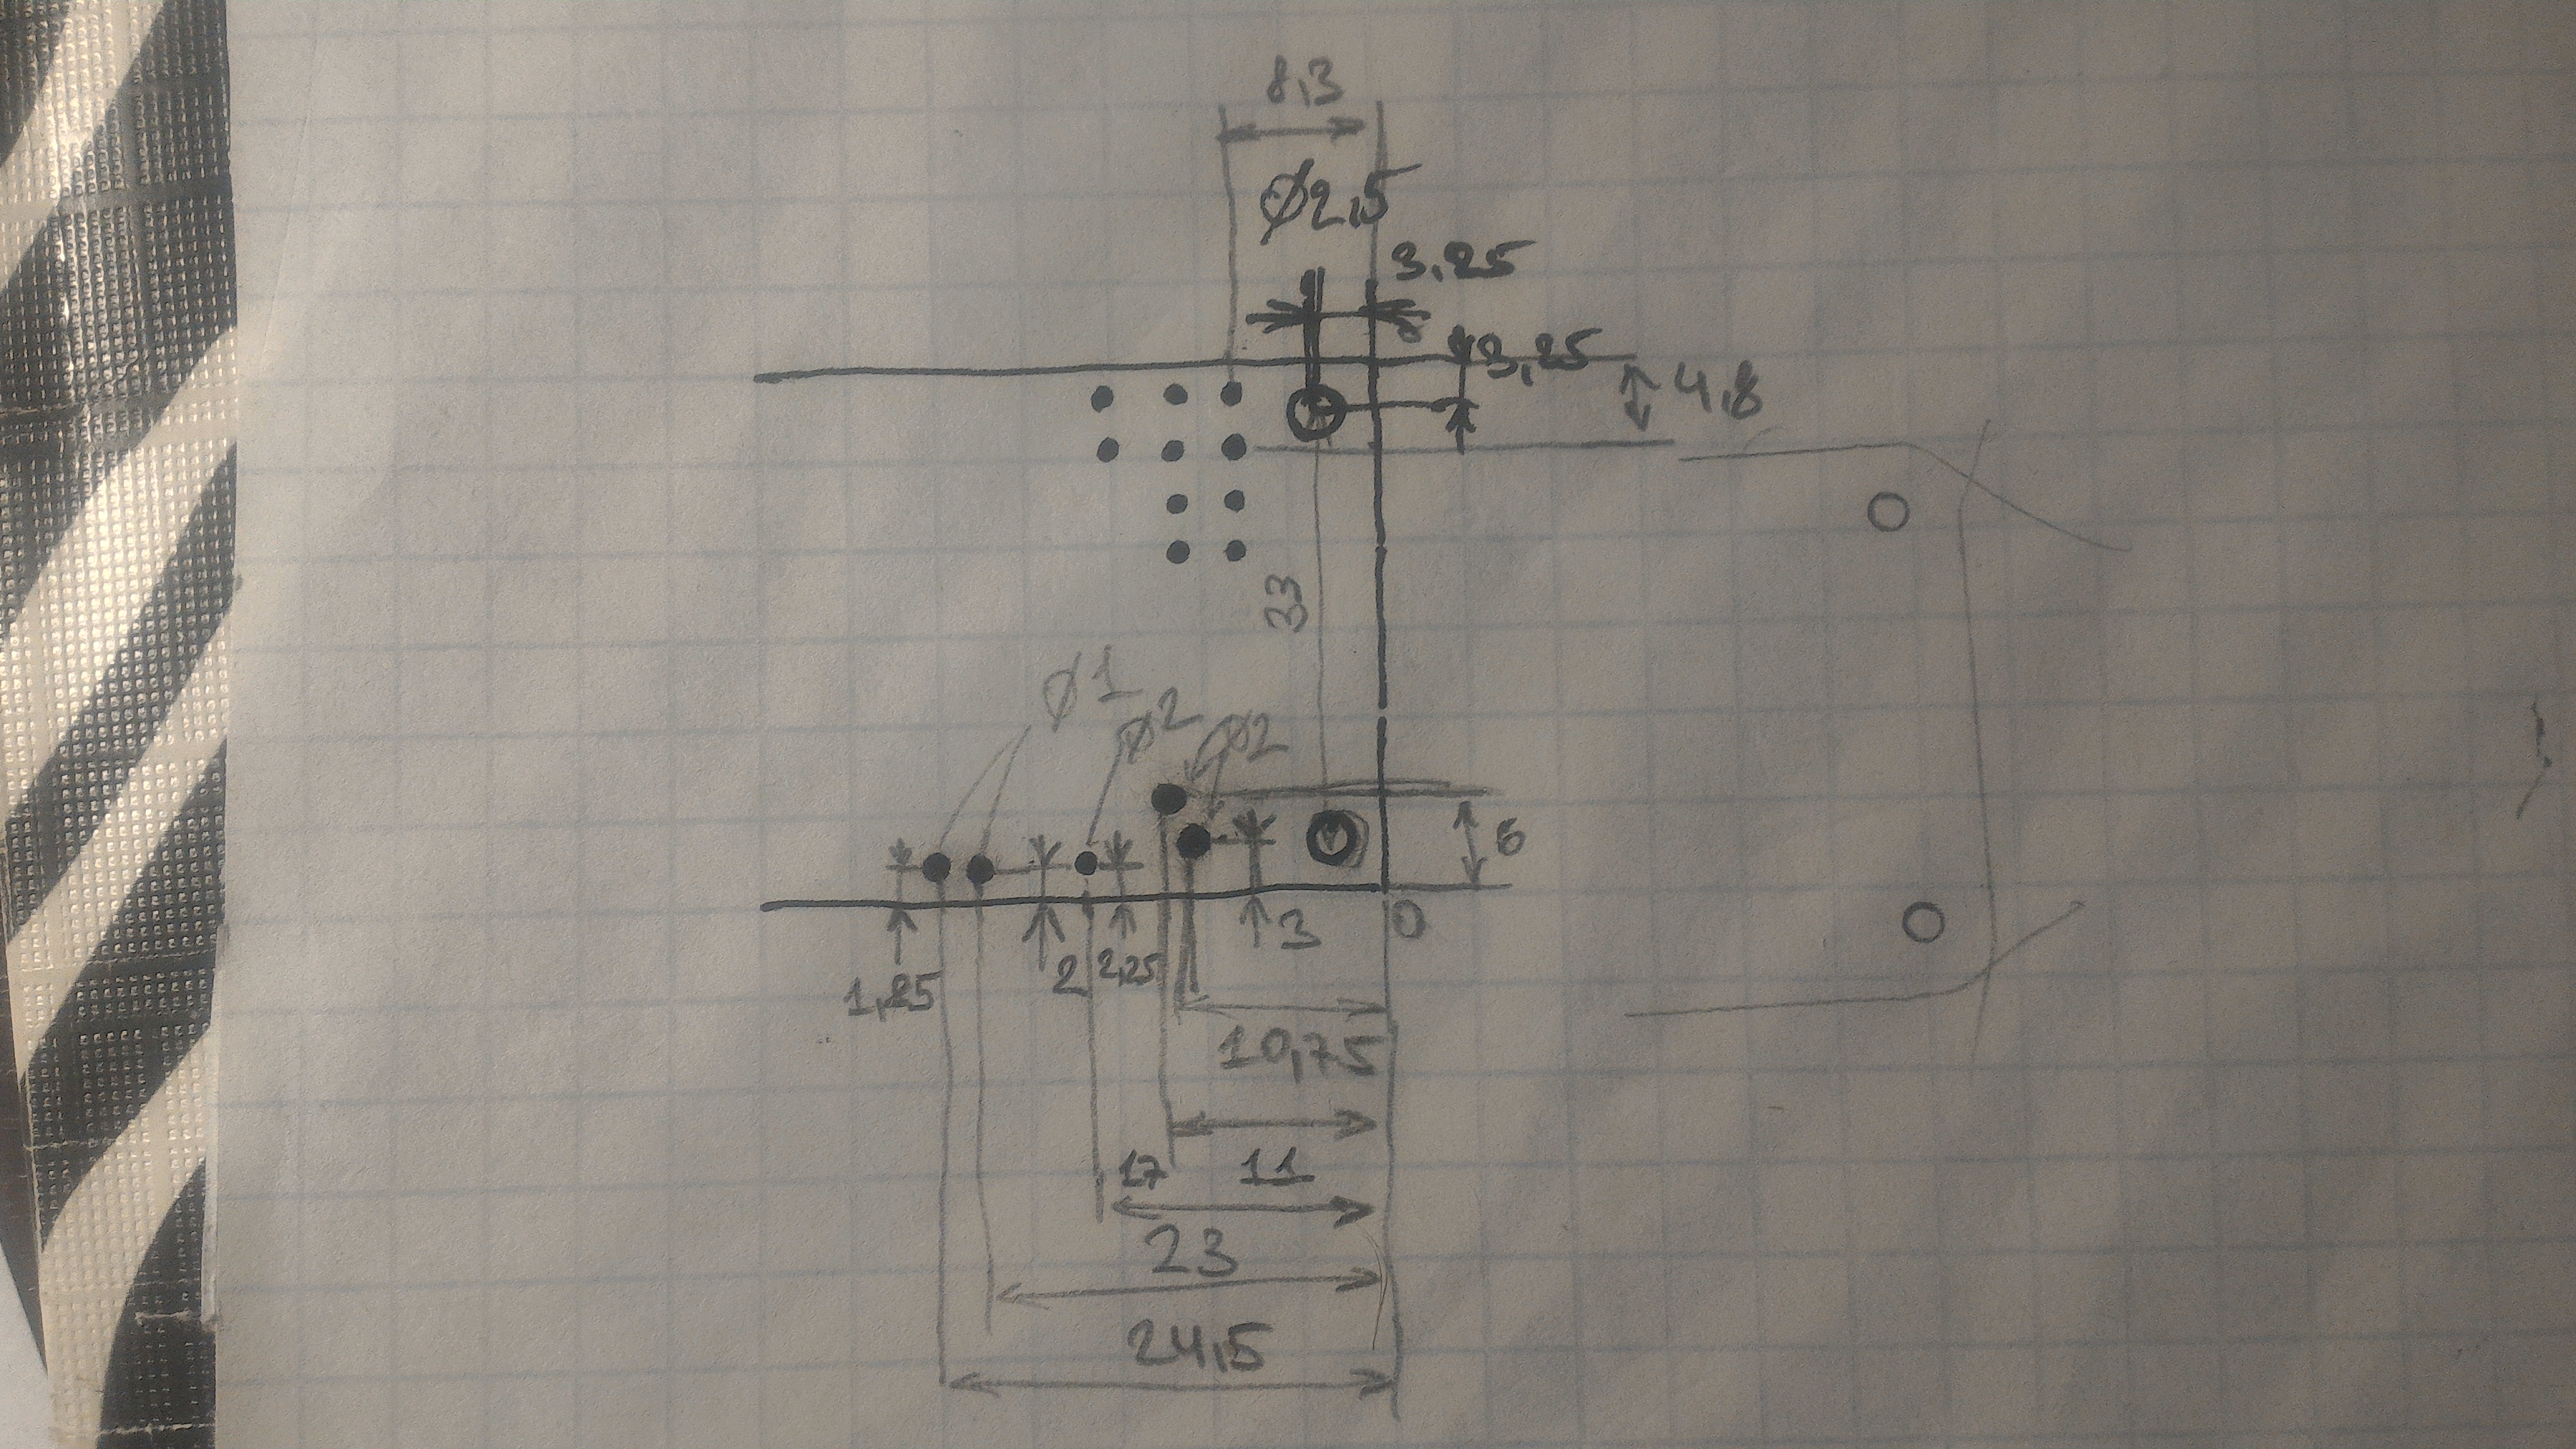 8,3
Ø2,5
3,25
3,25
4,8
33
Ø1
Ø2
Ø2
6
0
3
2
2,25
1,25
10,75
17
11
23
24,5